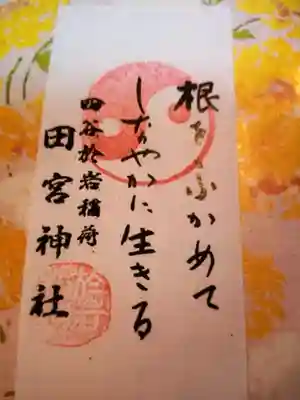 根をふかめて
しなやかに生きる
四谷於岩稲荷
田宮神社